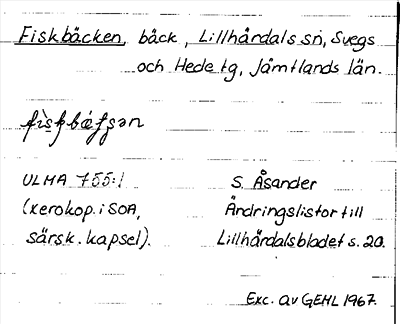 Fiskbäcken, bäck, Lillhärdals sn, Svegs
och Hede tg, Jämtlands län.
ULMA 755:1
(xerokop. i SOA,
särsk. kapsel).
S. Åsander
Ändringslistor till
Lillhärdalsbladet s. 20.
Exc. av GEHL 1967.